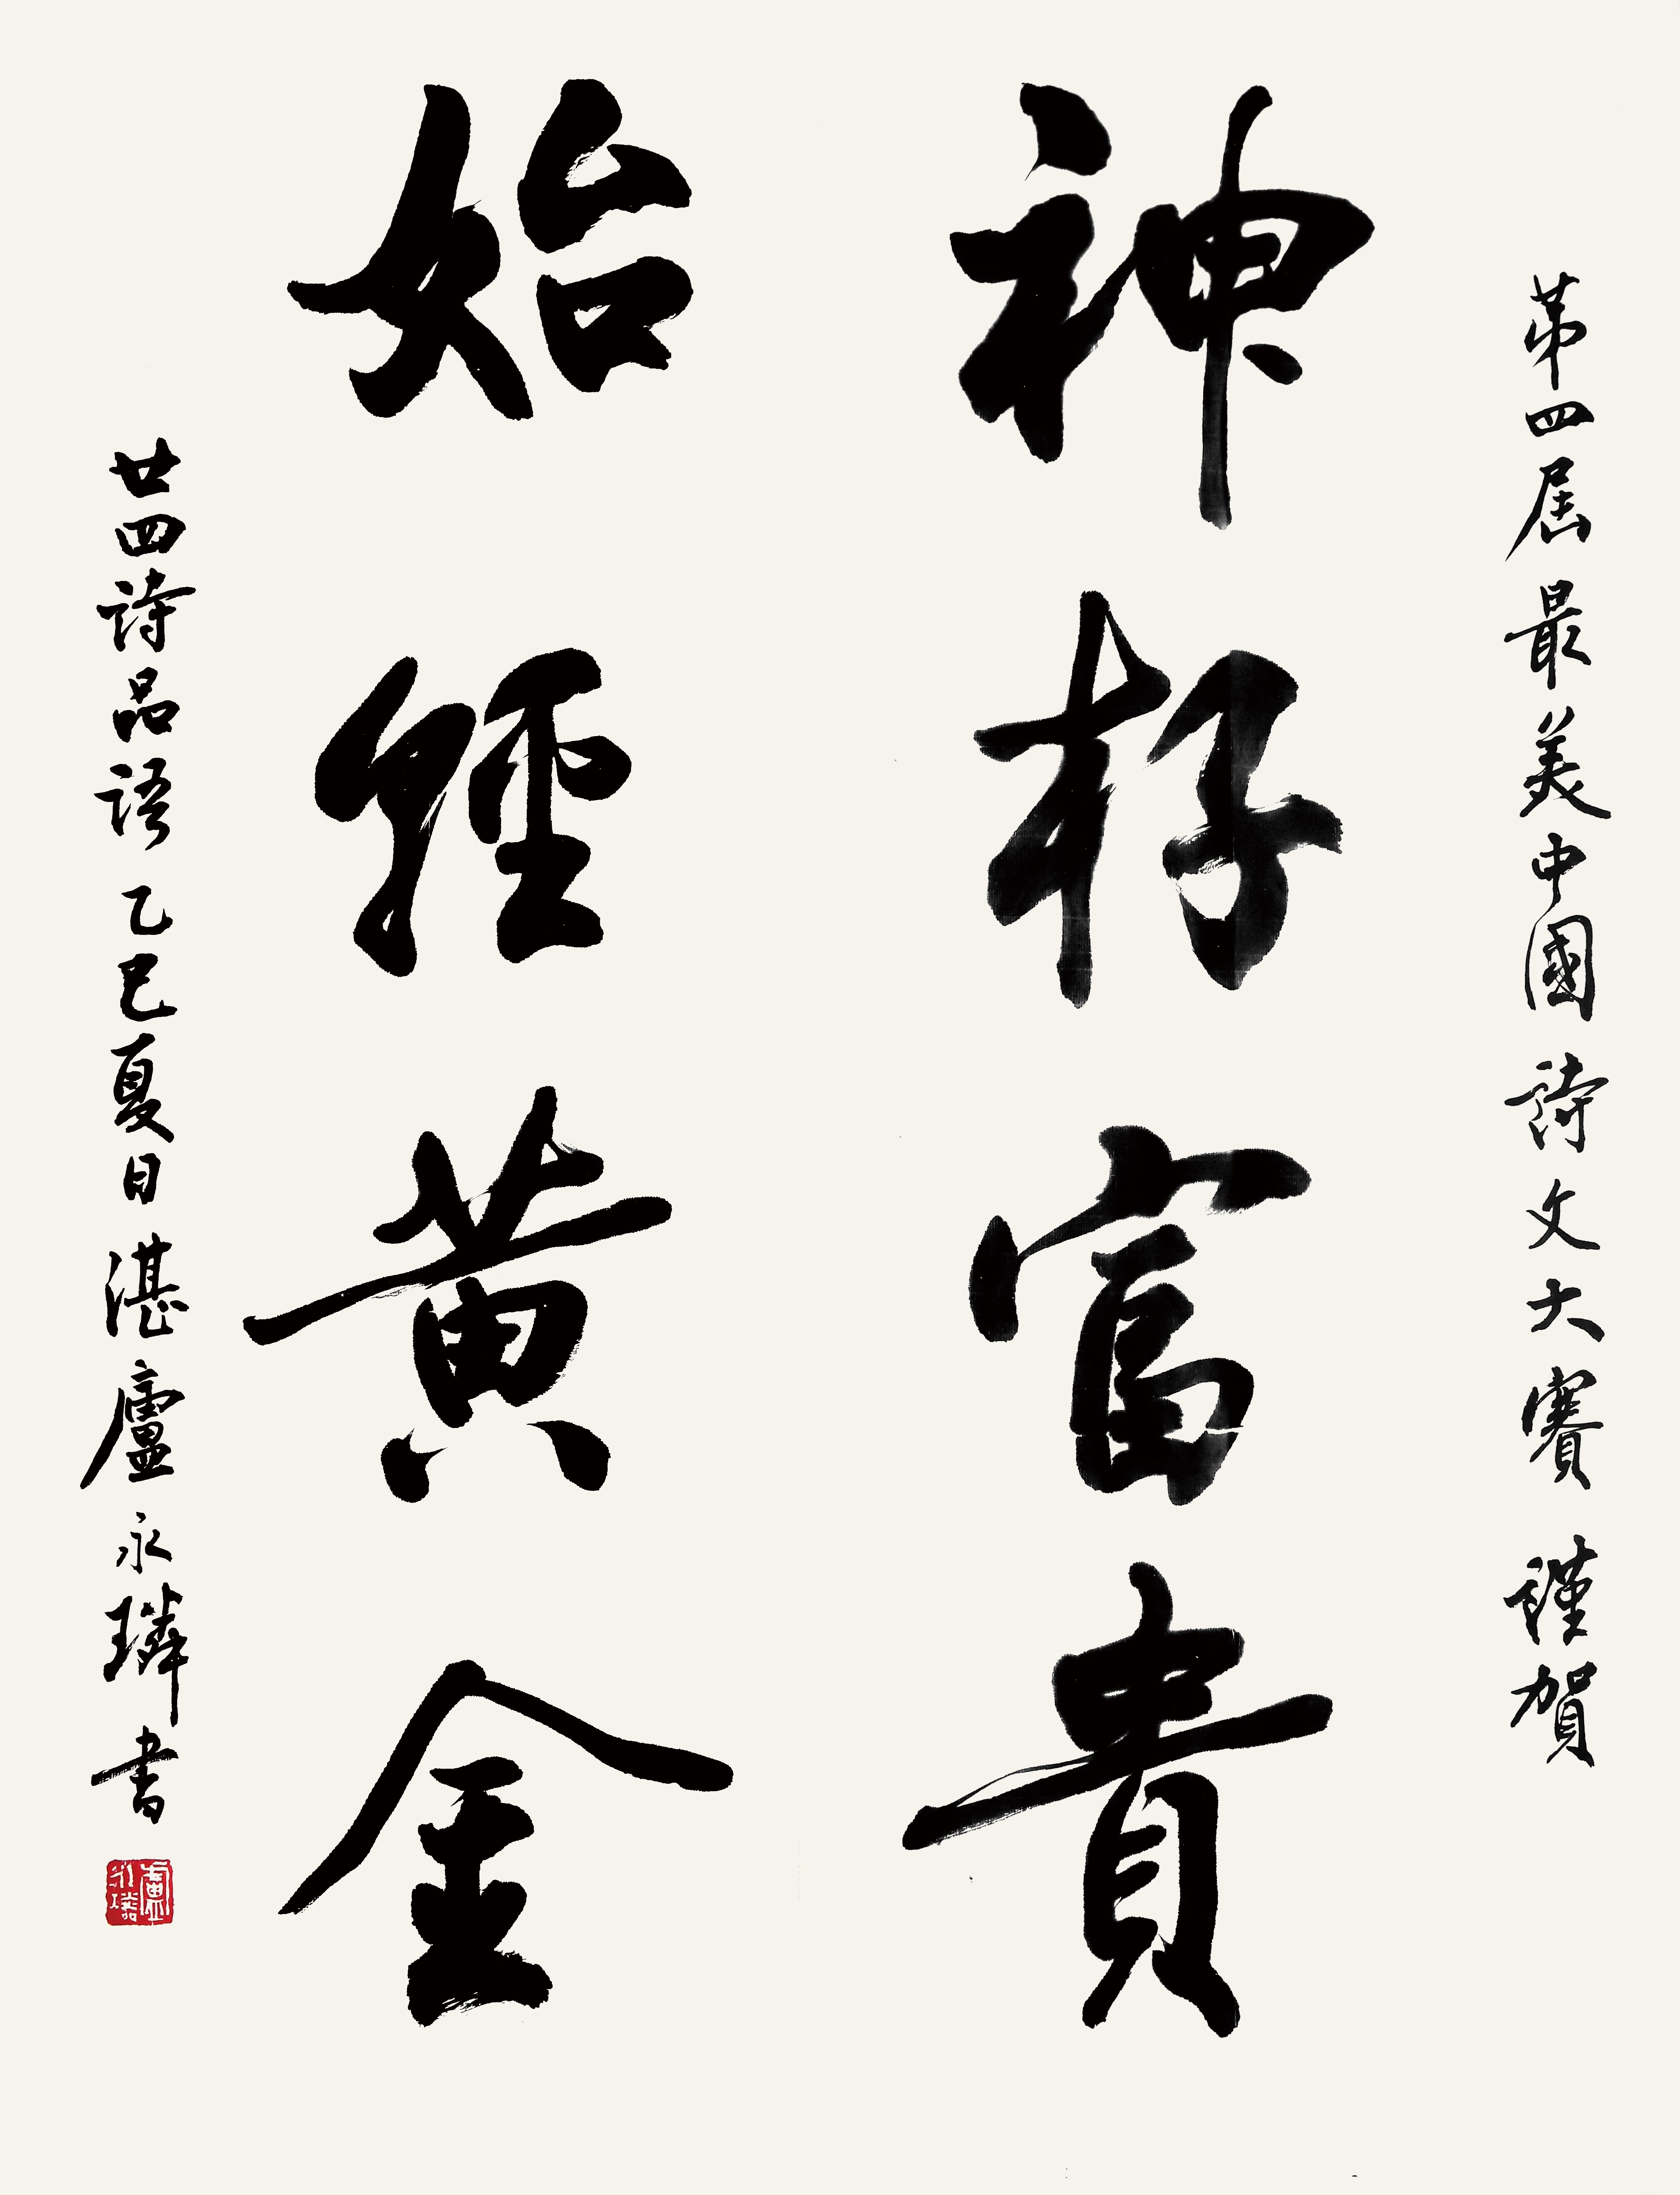 第四届最美中國詩文大賽 謹賀
神存富貴
始輕黄金
廿四詩品語 乙巳夏日 湛廬 永璘書
盧永璘